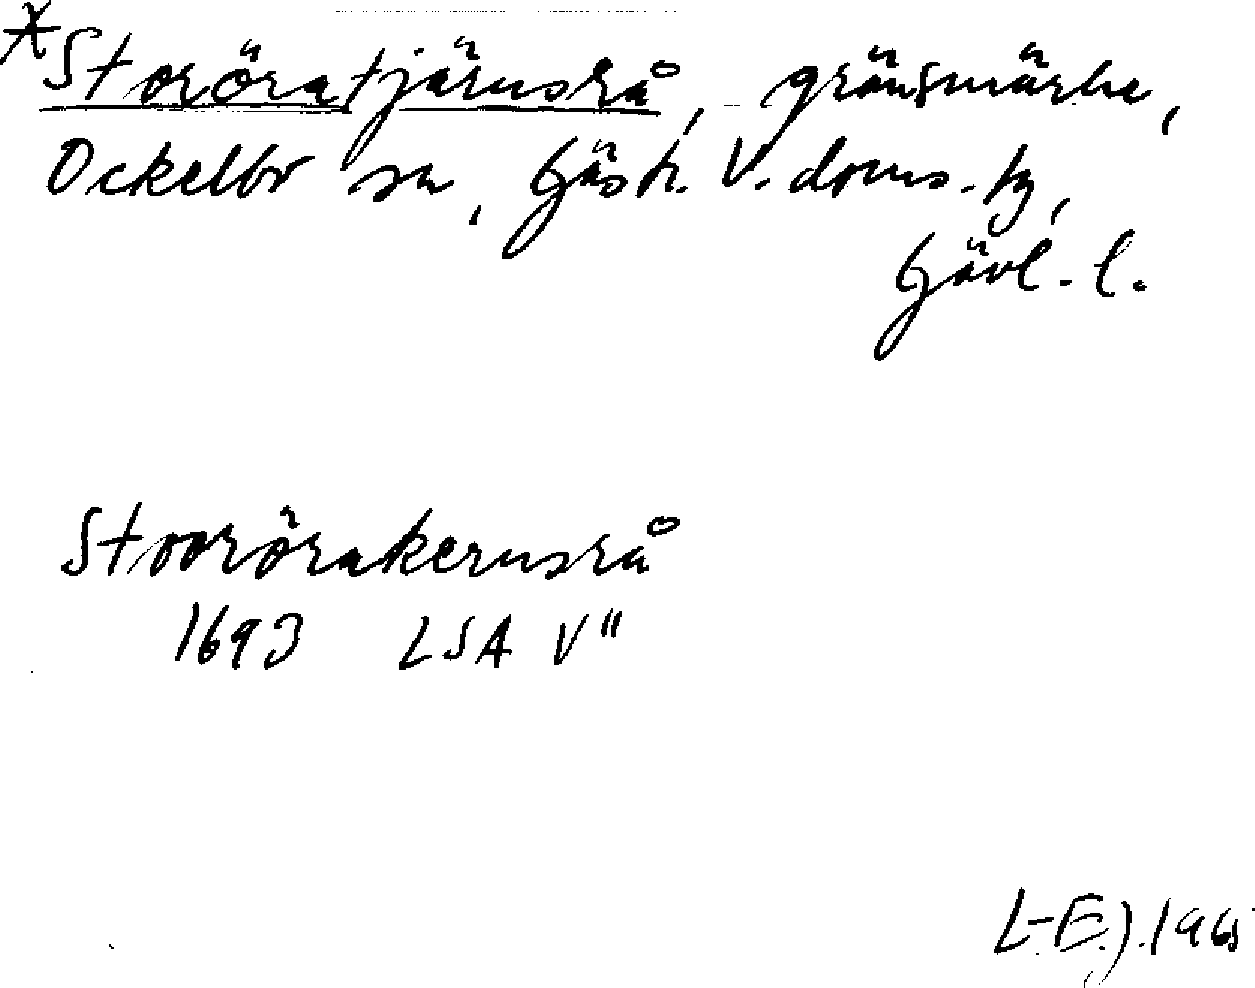 *Storöratjärnsrå, gränsmärke,
Ockelbo sn, Gästr. V. doms.-tg,
Gävl. l.
Stoorörakernsrå
1693 LSA V"
L-E.J. 1965